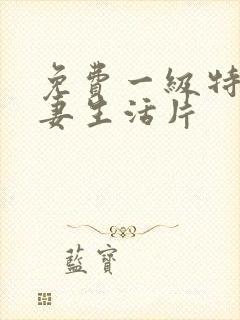 免費一級特
妻生活片
藍寶